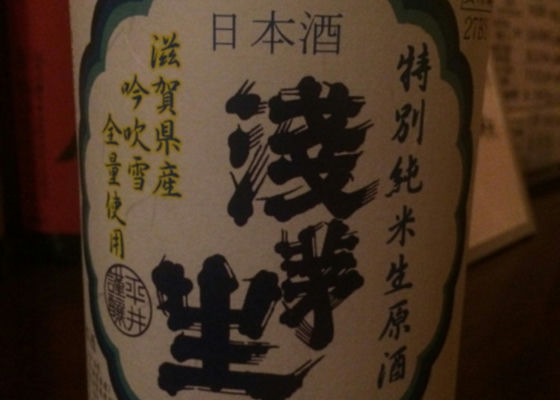 日本酒
特別純米生原酒
淺茅生
滋賀県産
吟吹雪
全量使用
平井
謹醸